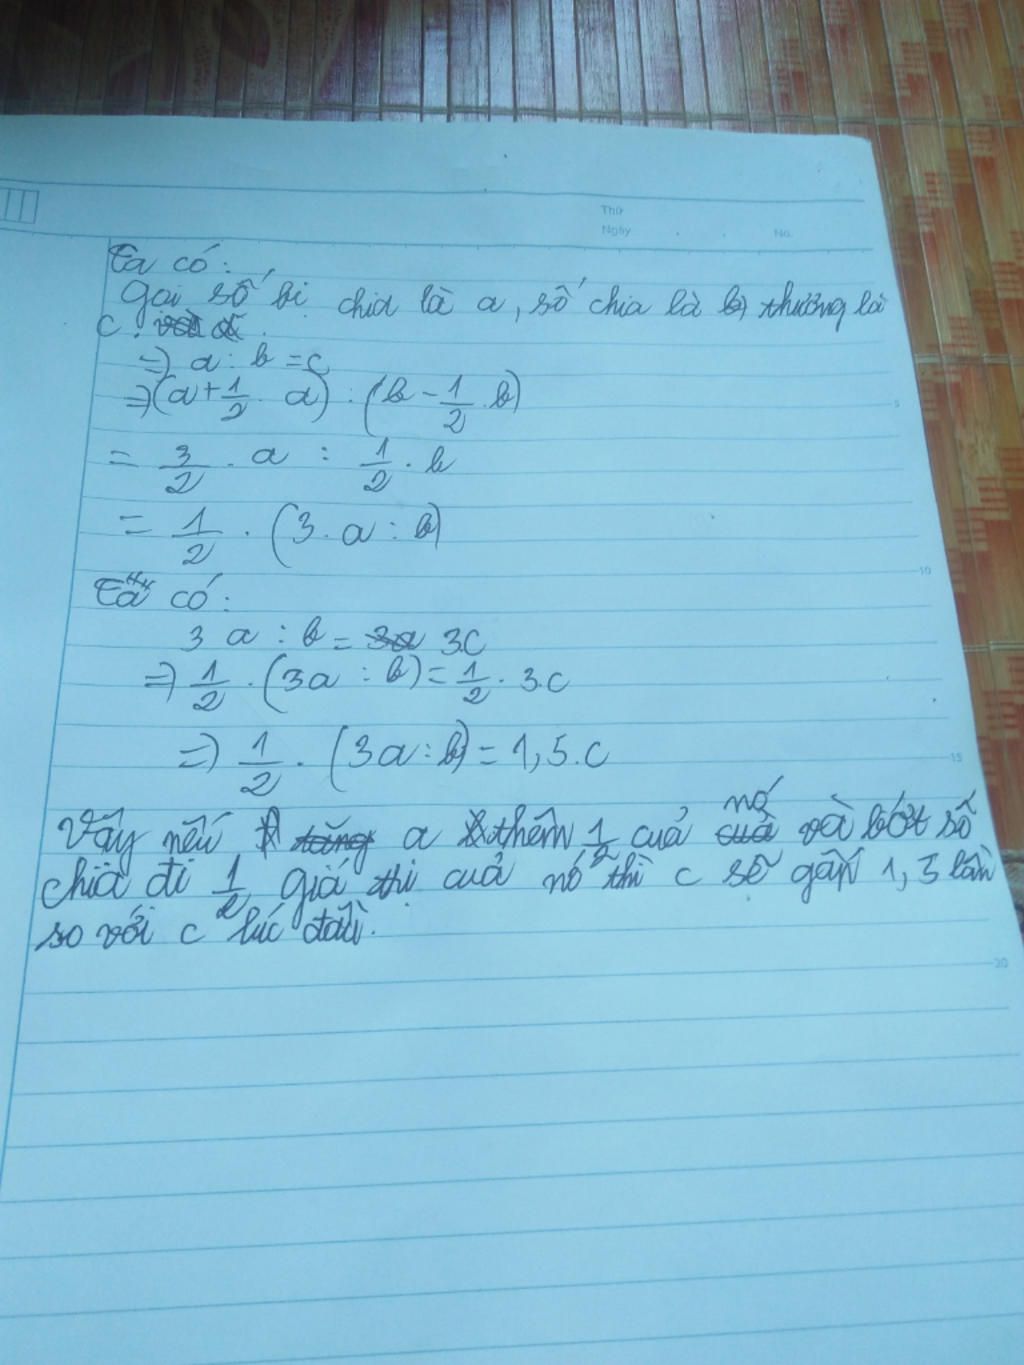 Thứ
Ngày . . No.
Ta có:
Gọi số bị chia là a, số chia là b, thương là
c.
=> a : b = c
=> (a + 1/2 . a) : (b - 1/2 . b)
= 3/2 . a : 1/2 . b
= 1/2 . (3 . a : b)
Ta có:
3 a : b = 3.c
=> 1/2 . (3a : b) = 1/2 . 3.c
=> 1/2 . (3a : b) = 1,5.c
Vậy nếu a thêm 1/2 của nó và bớt số
chia đi 1/2 giá trị của nó thì c sẽ gấp 1,5 lần
so với c lúc đầu.
5
10
15
20